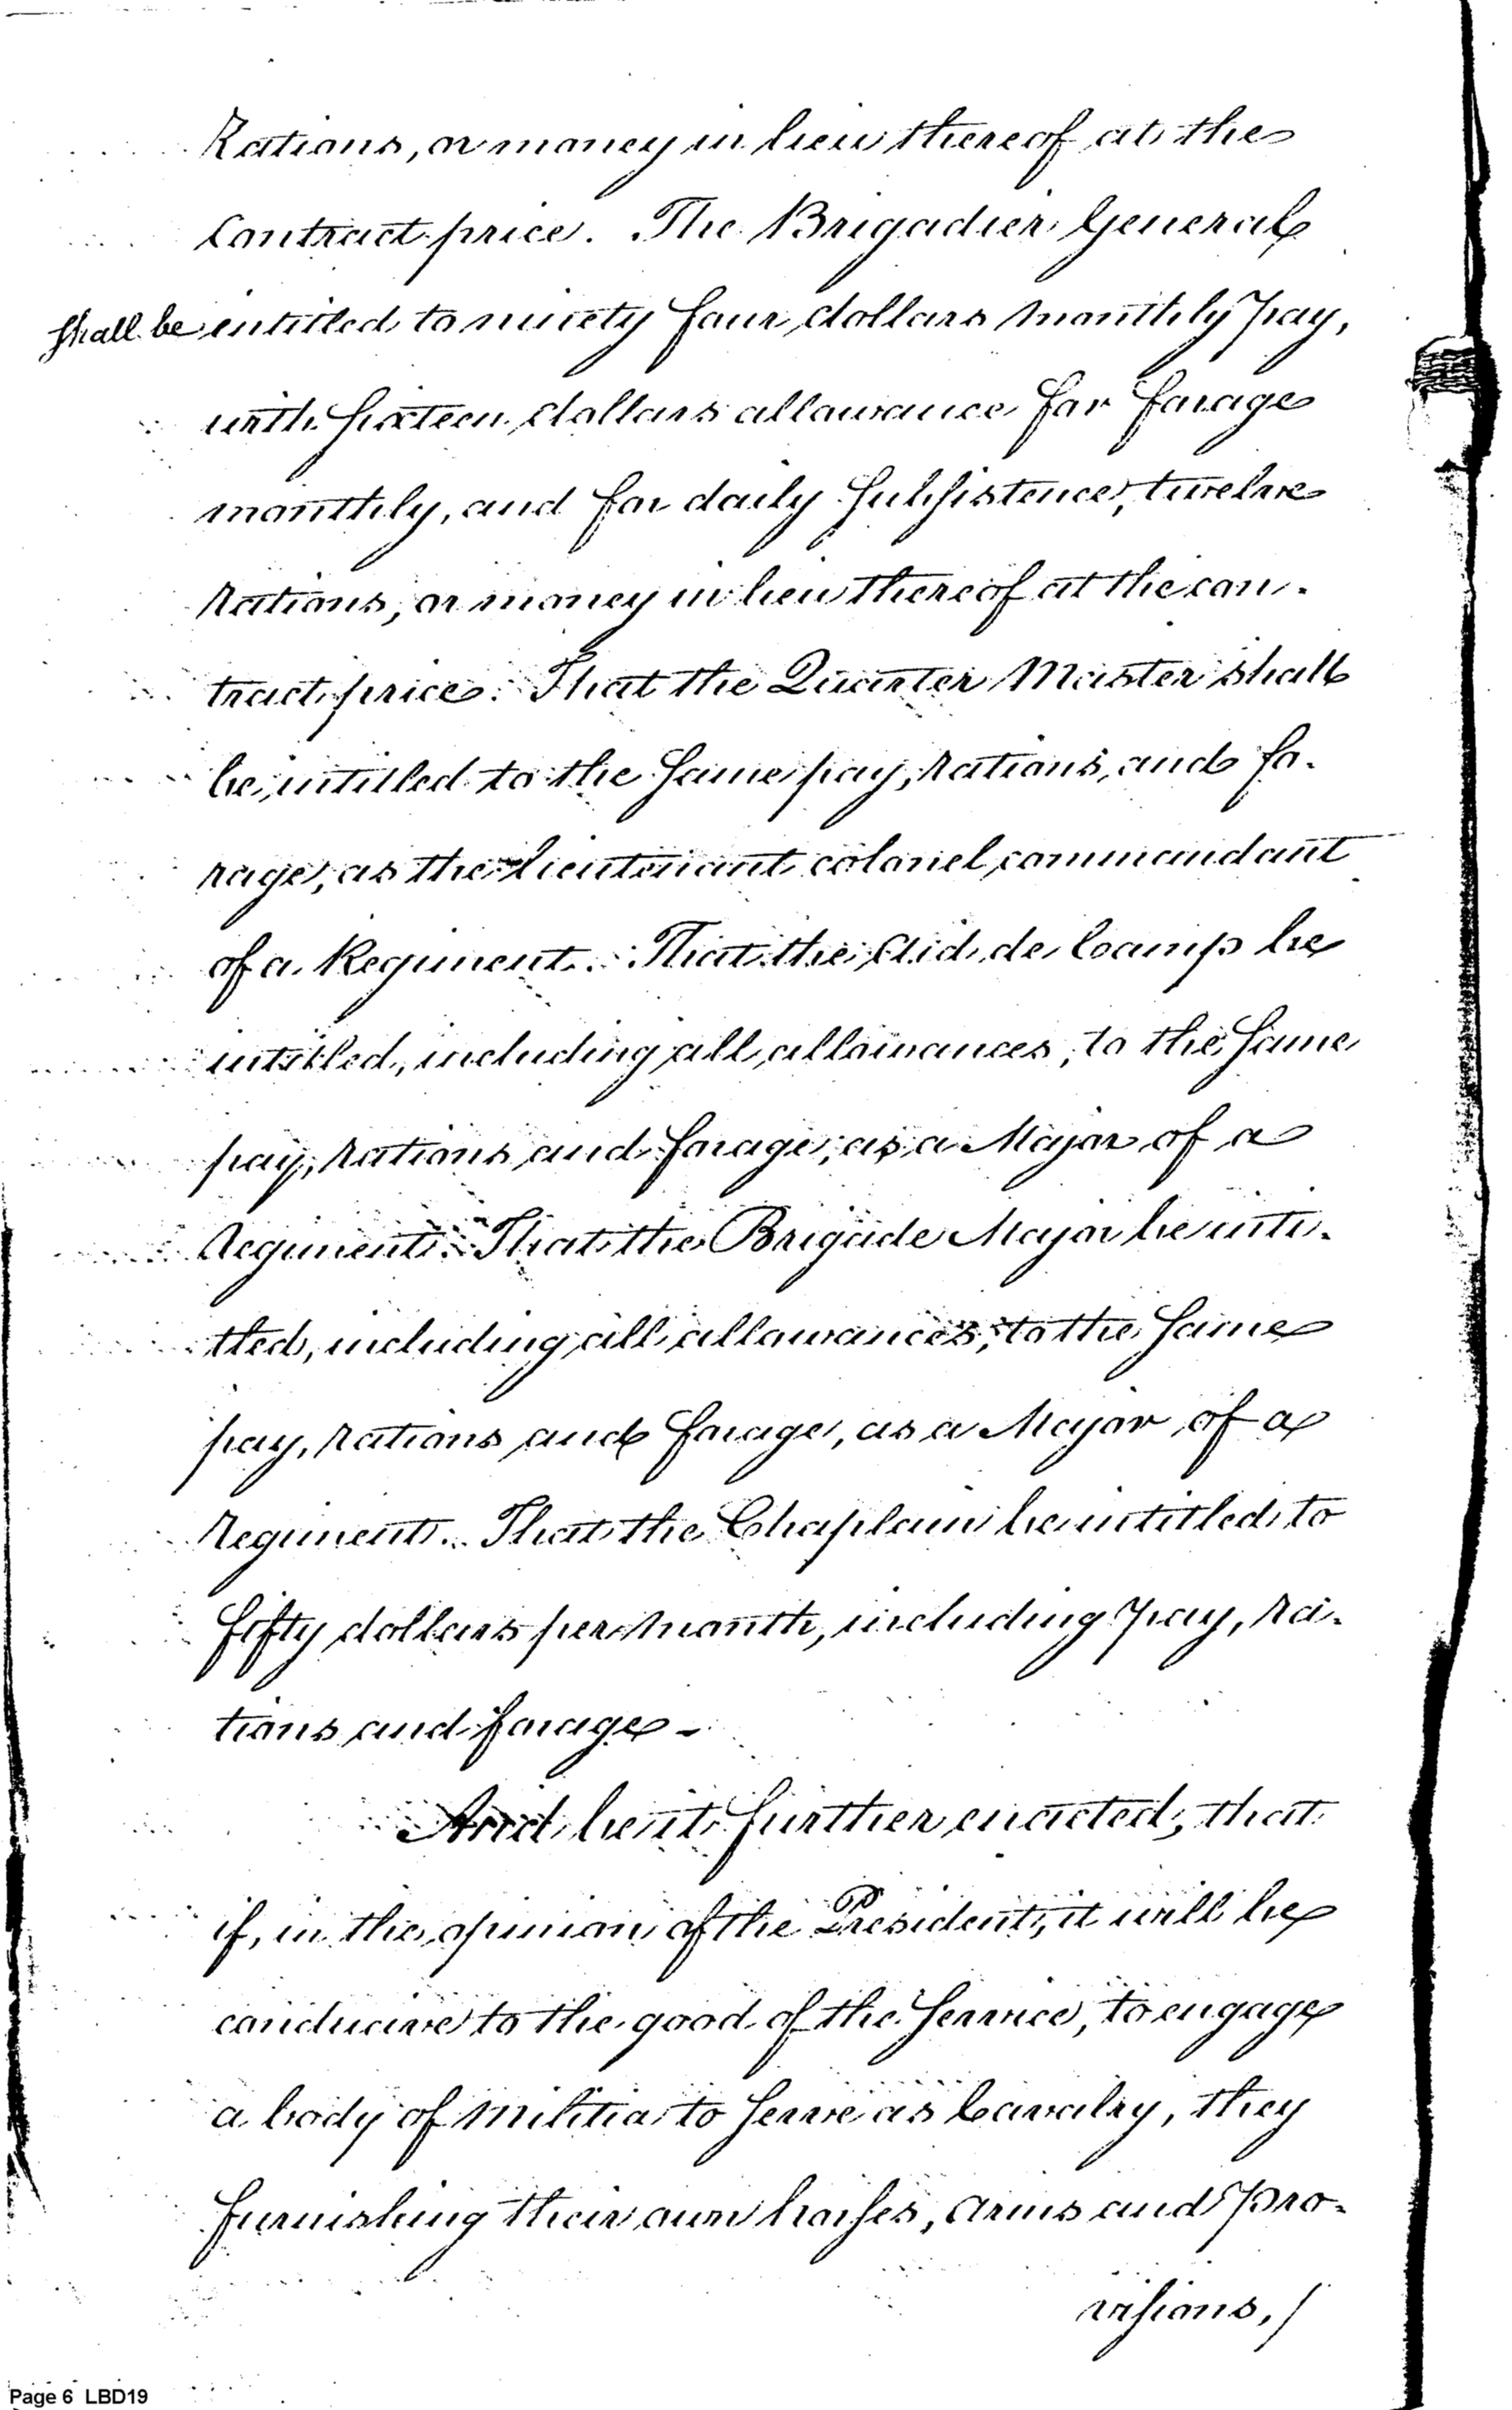 Rations, or money in lieu thereof at the
Contract price. The Brigadier General
shall be entitled to ninety four dollars monthly pay,
with sixteen dollars allowance for forage
monthly, and for daily subsistence, twelve
rations, or money in lieu thereof at the con-
tract price. That the Quarter Master shall
be intitled to the same pay, rations, and fo-
rage, as the lieutenant colonel commandant
of a Regiment. That the Aid de Camp be
intitled, including all allowances, to the same
pay, rations and forage, as a Major of a
Regiment. That the Brigade Major be inti-
tled, including all allowances, to the same
pay, rations and forage, as a Major of a
regiment. That the Chaplain be intitled to
fifty dollars per month, including pay, ra-
tions and forage -
And be it further enacted, that
if, in the opinion of the President, it will be
conducive to the good of the service, to engage
a body of militia to serve as Cavalry, they
furnishing their own horses, arms and pro-
visions, /
Page 6 LBD19